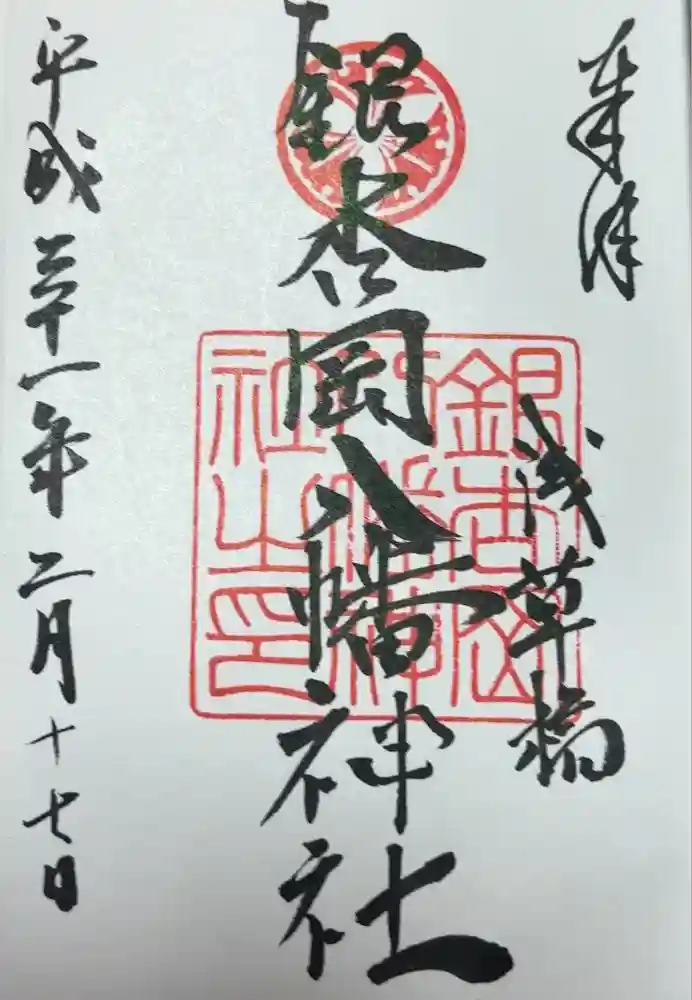 奉拝
浅草橋
銀杏岡八幡神社
平成三十一年二月十七日
銀杏岡
八幡神
社之印